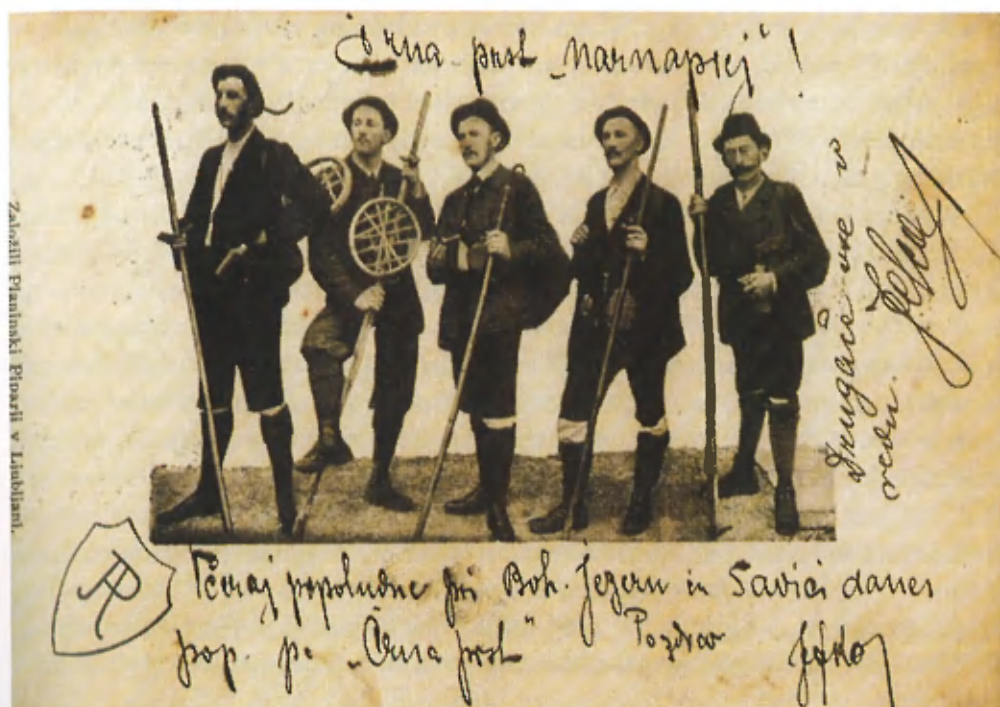 Črna prst „narnaprej“!
Založili Planinski Piparji v Ljubljani.
Drugače vse v
redu.
PR
Včeraj popoludne pri Boh. Jezeru in Savici danes
pop. pa „Črna prst“ Pozdrav